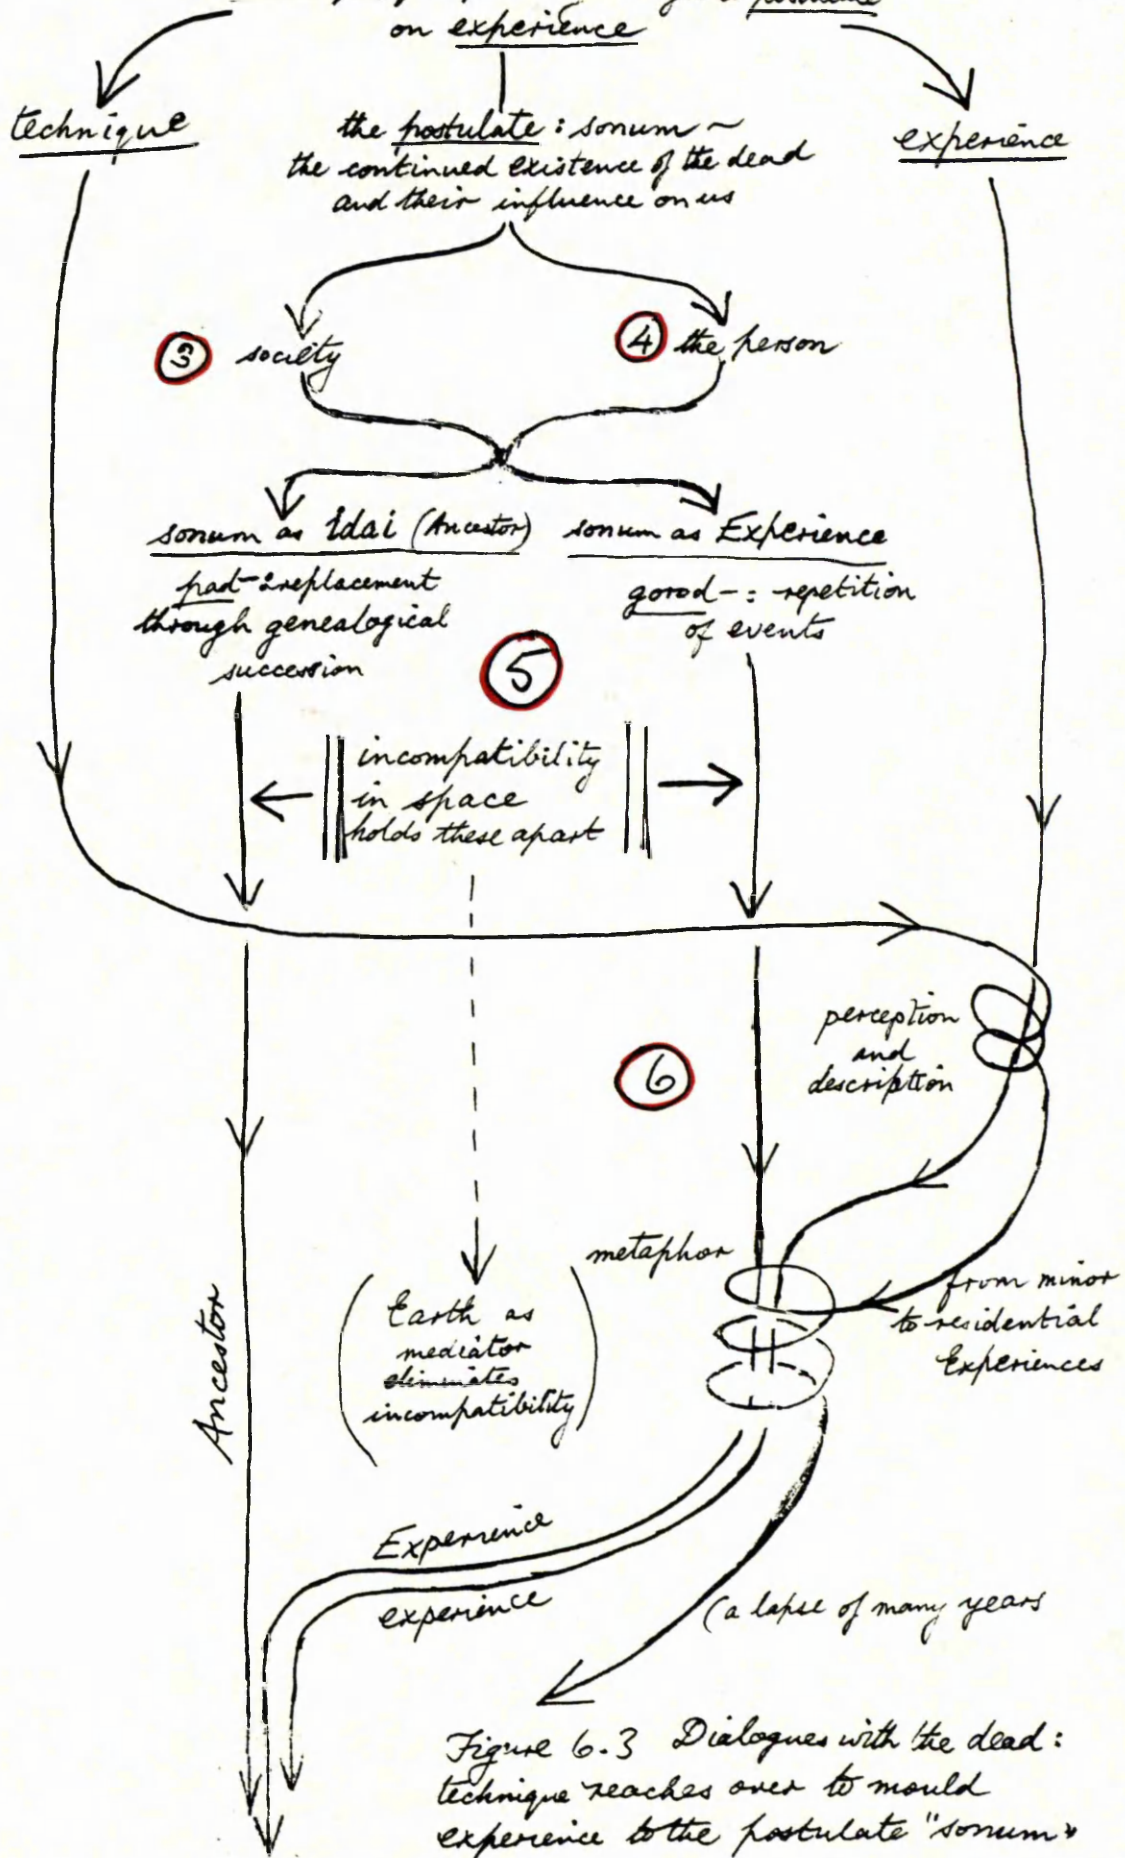 postulate
on experience
technique
the postulate : sonum ~
the continued existence of the dead
and their influence on us
experience
3 society
4 the person
sonum as Idai (Ancestor)
pad-: replacement
through genealogical
succession
sonum as Experience
gorod- : repetition
of events
5
incompatibility
in space
holds these apart
6
perception
and
description
metaphor
from minor
to residential
Experiences
(Earth as
mediator
eliminates
incompatibility)
Ancestor
Experience
experience
(a lapse of many years
Figure 6.3 Dialogues with the dead :
technique reaches over to mould
experience to the postulate "sonum"